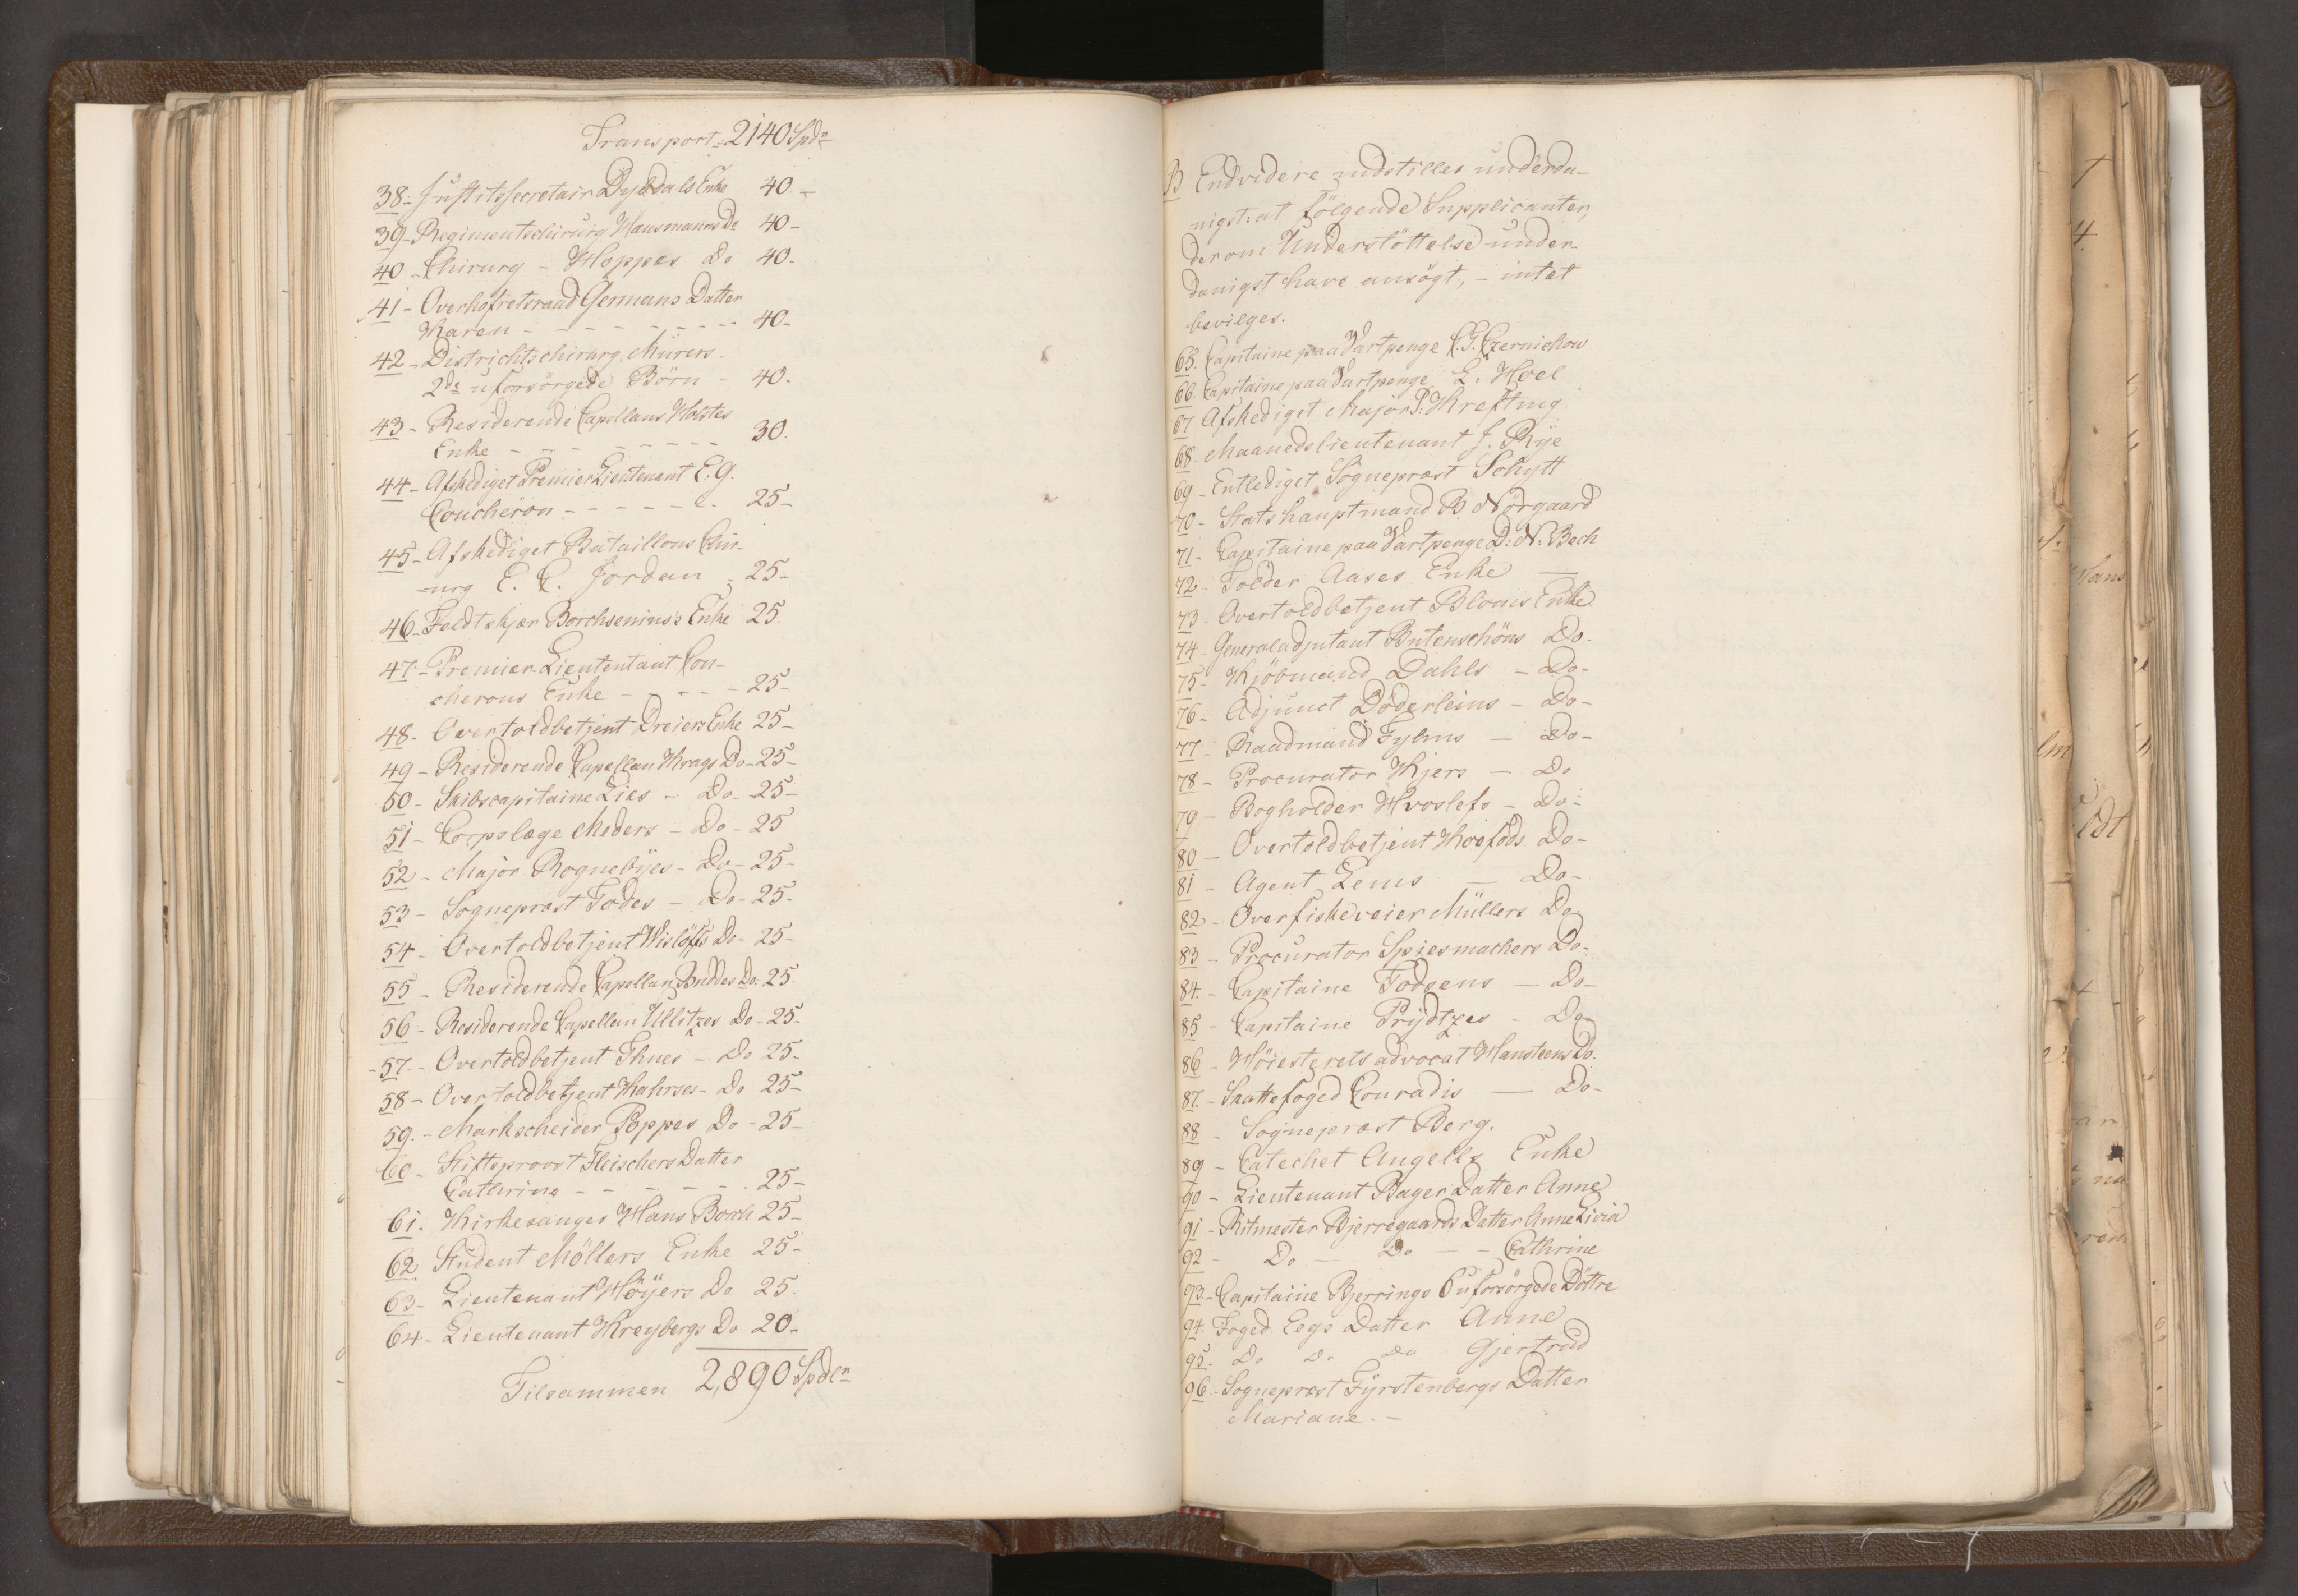 Transport 2140 Spdr
38. Justitssecretair Dybdals Enke 40.-
39. Regimentschirurg Hausmanns Do 40-
40. Chirurg - Hoppes Do 40-
41 - Overhofretsraad Germans Datter
Karen - - - - - - - - 40-
42 - Districtschirurg Mürers
2de uforsörgede Börn - 40.
43 - Residerende Capellans Holstes
Enke - - - - - - - 30.
44 - Afskediget Premier Lieutenant E. G.
Coucheron - - - - - - 25-
45 - Afskediget Bataillons Chir-
urg E. C. Jordan - 25-
46 - Feldtskjær Borchsenius's Enke 25.
47 - Premier-Lieutentant Cou-
cherons Enke - - - - 25-
48. Overtoldbetjent Dreiers Enke 25-
49 - Residerende Capellan Krags Do - 25-
50 - Skibscapitaine Lies - Do - 25-
51 - Corpslæge Meders - Do - 25
52 - Major Rognebÿes - Do - 25-
53 - Sognepræst Todes - Do - 25-
54 - Overtoldbetjent Wislöffs Do - 25-
55 - Residerende Capellan Buddes Do. 25.
56 - Residerende Capellan Ullitzes Do - 25-
57. - Overtoldbetjent Thues - Do 25-
58 - Overtoldbetjent Kahrses - Do 25-
59. - Markscheider Poppes Do - 25-
60 - Stiftsprovst Fleischers Datter
Cathrine - - - - - - 25-
61. Kirkesanger Hans Borch 25-
62. Student Möllers Enke 25-
63 - Lieutenant Höÿers Do 25.
64 - Lieutenant Kreybergs Do 20-
Tilsammen 2,890 Spdlr
B Endvidere indstilles underda-
nigst: at fölgende Supplicanter,
der om Understöttelse under-
danigst have ansögt, - intet
bevilges.
65. Capitaine paa Vartpenge C. F. Czernichow
66. Capitaine paa Vartpenge L. Hoel
67 Afskediget Major P. Krefting
68. Maanedslieutenant J. Rÿe
69 - Entlediget Sognepræst Schytt
70 - Statshauptmand B Nörgaard
71 - Capitaine paa Vartpenge D. N. Bech
72 - Tolder Aases Enke -
73. Overtoldbetjent Bloms Enke
74 - Generaladjutant Butenschöns Do.
75 - Kjöbmand Dahls - Do-
76 - Adjunct Döderleins - Do-
77 - Raadmand Fylms - Do-
78 - Procurator Kjers - Do
79 - Bogholder Hvoslefs - Do-
80 - Overtoldbetjent Koefods Do-
81 - Agent Lems - Do-
82 - Overfiskeveier Müllers Do
83 - Procurator Spiesmachers Do-
84. - Capitaine Todsens - Do-
85 - Capitaine Prÿdtzes - Do-
86 - Höiesterets advocat Hansteens Do.
87. - Skattefoged Conradis - Do-
88 - Sognepræst Berg.
89 - Catechet Angells Enke
90 - Lieutenant Bager Datter Anne
91 - Ritmester Bjerregaards Datter Anne Livia
92 - Do - Do - - Cathrine
93. - Capitaiie Bjerrings 6 uforsörgede Döttre
94. Foged Eegs Datter Anne
95. Do Do Do Gjertrud
96 - Sognepræst Fÿrstenbergs Datter
Mariane. -